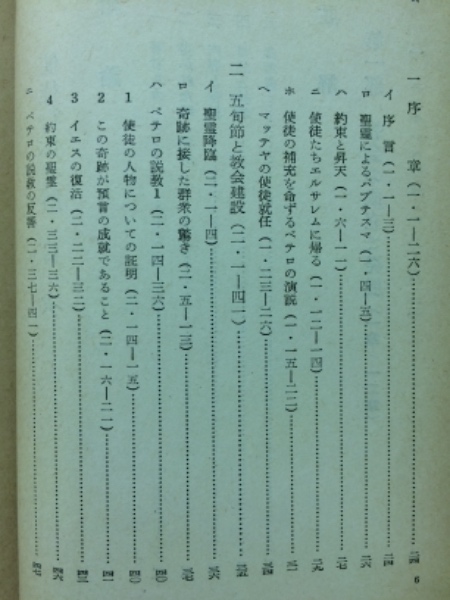 一 序 章(一・一―二六)……二四
イ 序言(一・一―三)……二四
ロ 聖霊によるバプテスマ(一・四―五)……二六
ハ 約束と昇天(一・六―一一)……二七
ニ 使徒たちエルサレムに帰る(一・一二―一四)……二九
ホ 使徒の補充を命ずるペテロの演説(一・一五―二二)……三一
ヘ マッテヤの使徒就任(一・二三―二六)……三四
二 五旬節と教会建設(二・一―四一)……三五
イ 聖霊降臨(二・一―四)……三六
ロ 奇跡に接した群衆の驚き(二・五―一三)……三七
ハ ペテロの説教1(二・一四―三六)……四〇
1 使徒の人物についての証明(二・一四―一五)……四〇
2 この奇跡が預言の成就であること(二・一六―二一)……四一
3 イエスの復活(二・二二―三二)……四三
4 約束の聖霊(二・三三―三六)……四六
ニ ペテロの説教の反響(二・三七―四一)……四七
6